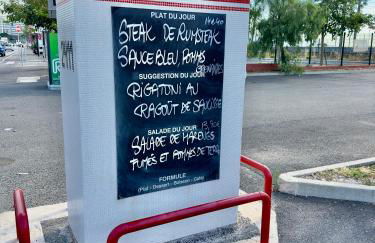 PLAT DU JOUR
STEAK DE RUMSTEAK
SAUCE BLEU, POMMES
GRENAILLES
SUGGESTION DU JOUR
RIGATONI AU
RAGOÛT DE SAUCISSE
SALADE DU JOUR
SALADE DE HARENGS
FUMÉS ET POMMES DE TERRE
FORMULE
(Plat - Dessert - Boisson - Café)